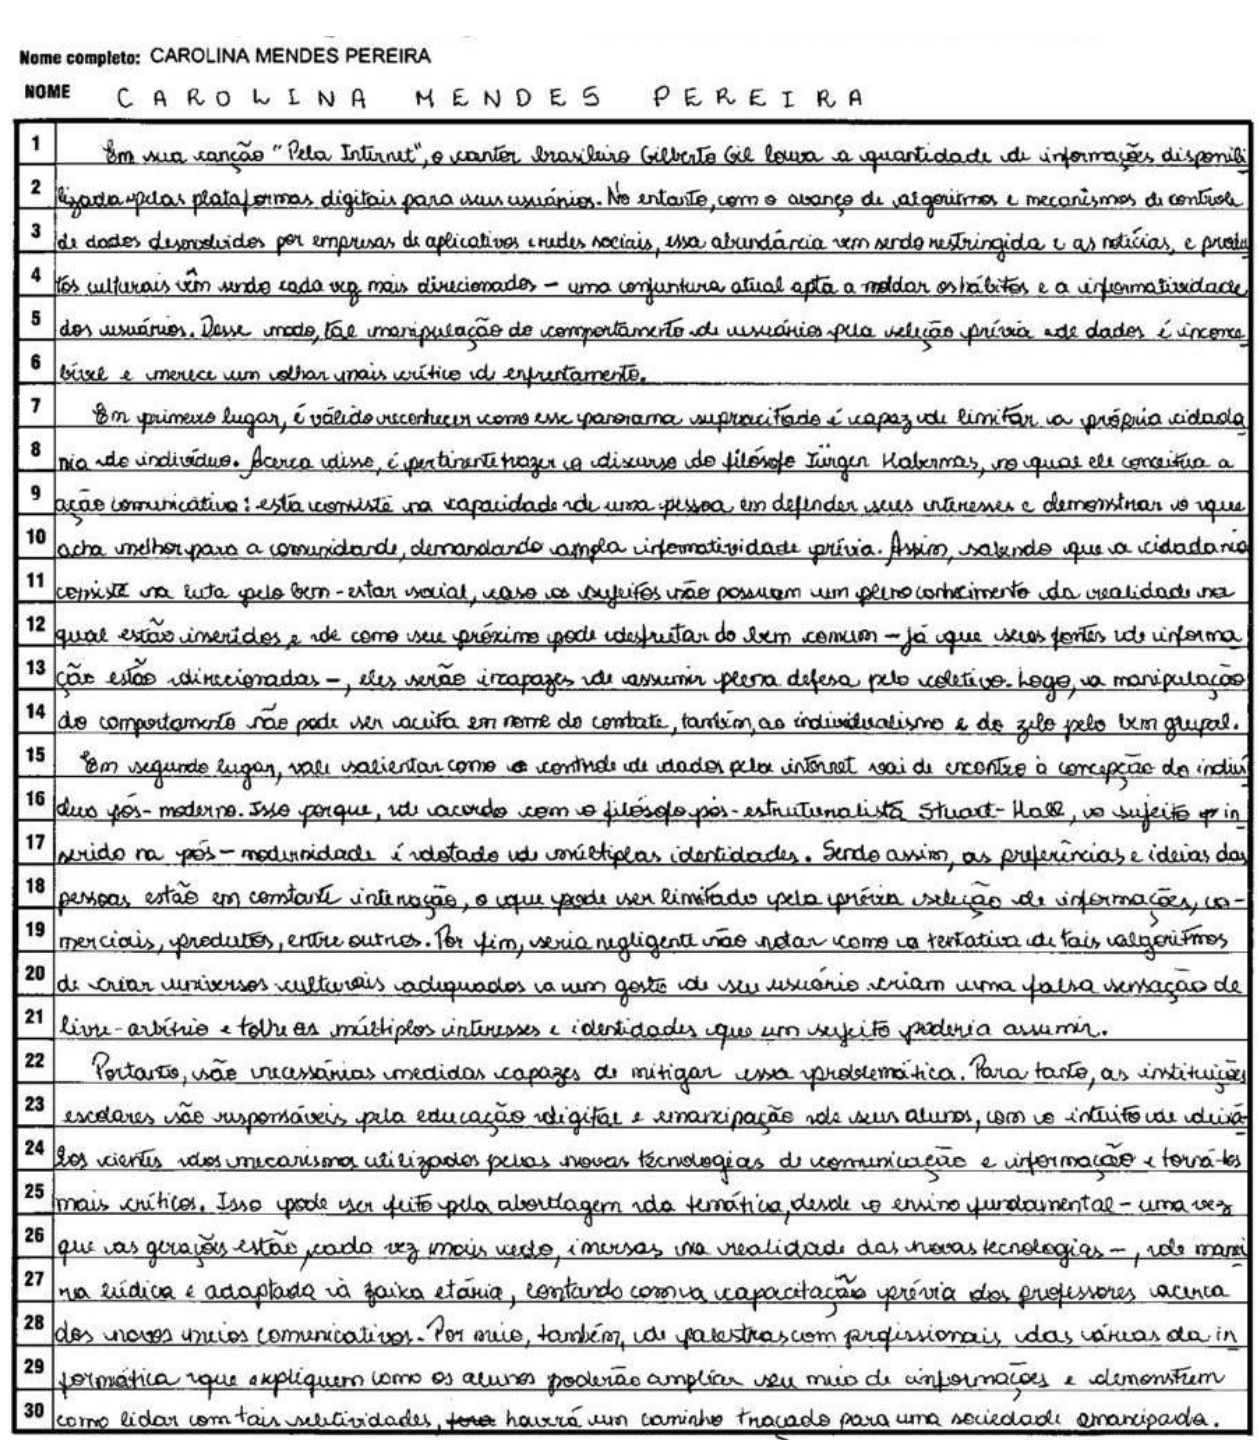 Nome completo: CAROLINA MENDES PEREIRA
NOME CAROLINA MENDES PEREIRA
1 Em sua canção "Pela Internet", o cantor brasileiro Gilberto Gil louva a quantidade de informações disponibi
2 lizadas pelas plataformas digitais para seus usuários. No entanto, com o avanço de algoritmos e mecanismos de controle
3 de dados desenvolvidos por empresas de aplicativos e redes sociais, essa abundância vem sendo restringida e as notícias, e produ
4 tos culturais vêm sendo cada vez mais direcionados - uma conjuntura atual apta a moldar os hábitos e a informatividade
5 dos usuários. Desse modo, tal manipulação do comportamento de usuários pela seleção prévia de dados é inconce
6 bível e merece um olhar mais crítico de enfrentamento.
7 Em primeiro lugar, é válido reconhecer como esse panorama supracitado é capaz de limitar a própria cidada
8 nia do indivíduo. Acerca disso, é pertinente trazer o discurso do filósofo Jürgen Habermas, no qual ele conceitua a
9 ação comunicativa: esta consiste na capacidade de uma pessoa em defender seus interesses e demonstrar o que
10 acha melhor para a comunidande, demandando ampla informatividade prévia. Assim, sabendo que a cidadania
11 consiste na luta pelo bem-estar social, caso os sujeitos não possuam um pleno conhecimento da realidade na
12 qual estão inseridos e de como seu próximo pode desfrutar do bem comum - já que suas fontes de informa
13 ção estão direcionadas -, eles serão incapazes de assumir plena defesa pelo coletivo. Logo, a manipulação
14 do comportamento não pode ser aceita em nome do combate, também, ao individualismo e do zelo pelo bem grupal.
15 Em segundo lugar, vale salientar como o controle de dados pela internet vai de encontro à concepção do indiví
16 duo pós-moderno. Isso porque, de acordo com o filósofo pós-estruturalista Stuart-Hall, o sujeito in
17 serido na pós-modernidade é dotado de múltiplas identidades. Sendo assim, as preferências e ideias das
18 pessoas estão em constante interação, o que pode ser limitado pela prévia seleção de informações, co-
19 merciais, produtos, entre outros. Por fim, seria negligente não notar como a tentativa de tais algoritmos
20 de criar universos culturais adequados a um gosto de seu usuário criam uma falsa sensação de
21 livre-arbítrio e tolhe os múltiplos interesses e identidades que um sujeito poderia assumir.
22 Portanto, são necessárias medidas capazes de mitigar essa problemática. Para tanto, as instituições
23 escolares são responsáveis pela educação digital e emancipação de seus alunos, com o intuito de deixá-
24 los cientes dos mecanismos utilizados pelas novas tecnologias de comunicação e informação e torná-los
25 mais críticos. Isso pode ser feito pela abordagem da temática, desde o ensino fundamental - uma vez
26 que as gerações estão, cada vez mais cedo, imersas na realidade das novas tecnologias -, de manei
27 ra lúdica e adaptada à faixa etária, contando com a capacitação prévia dos professores acerca
28 dos novos meios comunicativos. Por meio, também, de palestras com profissionais das áreas da in
29 formática que expliquem como os alunos poderão ampliar seu meio de informações e demonstrem
30 como lidar com tais seletividades, haverá um caminho traçado para uma sociedade emancipada.